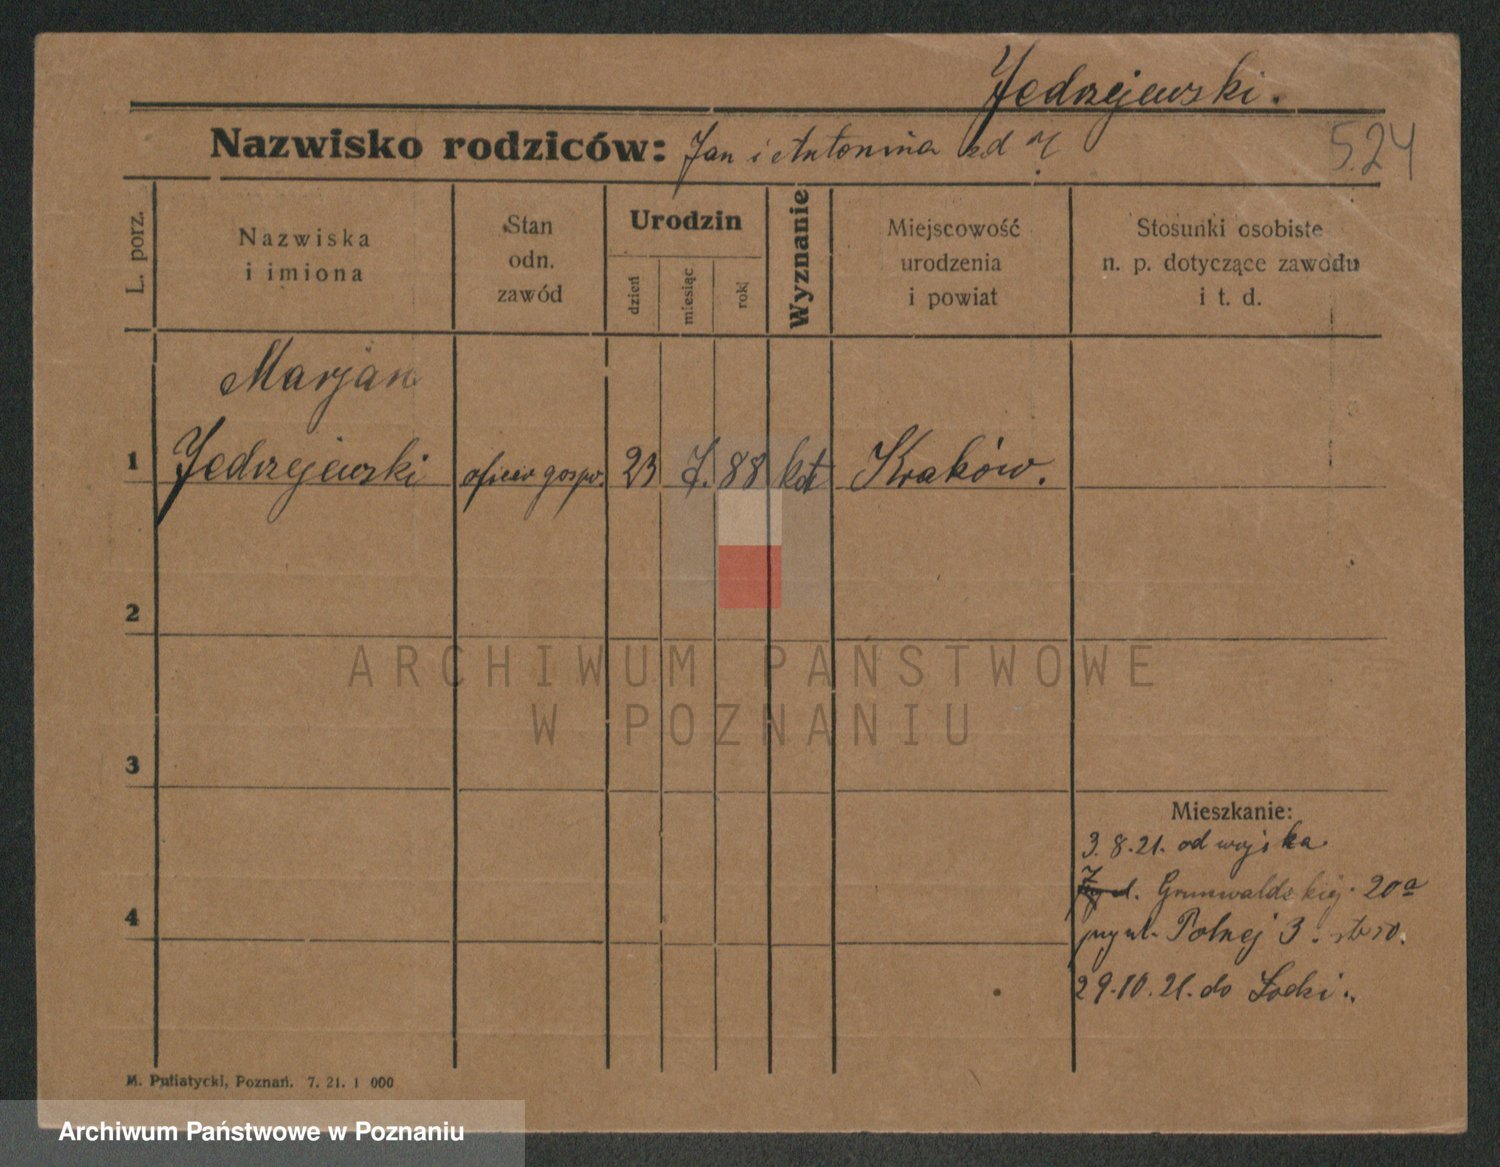 Jedrzejewski.
Nazwisko rodziców: Jan i Antonina
524
L. porz.
Nazwiska
i imiona
Stan
odn.
zawód
Urodzin
dzień
miesiąc
rok
Wyznanie
Miejscowość
urodzenia
i powiat
Stosunki osobiste
n. p. dotyczące zawodu
i t. d.
Marjan
1 Jedrzejewski oficer gospo. 23 7. 88 kat Kraków.
2
ARCHIWUM PAŃSTWOWE
W POZNANIU
3
Mieszkanie:
3. 8. 21. od wojska
Grunwaldzkiej 20a
4
przy ul. Polnej 3.
29.10.21. do
M. Putiatycki, Poznań. 7. 21. 1 000
Archiwum Państwowe w Poznaniu